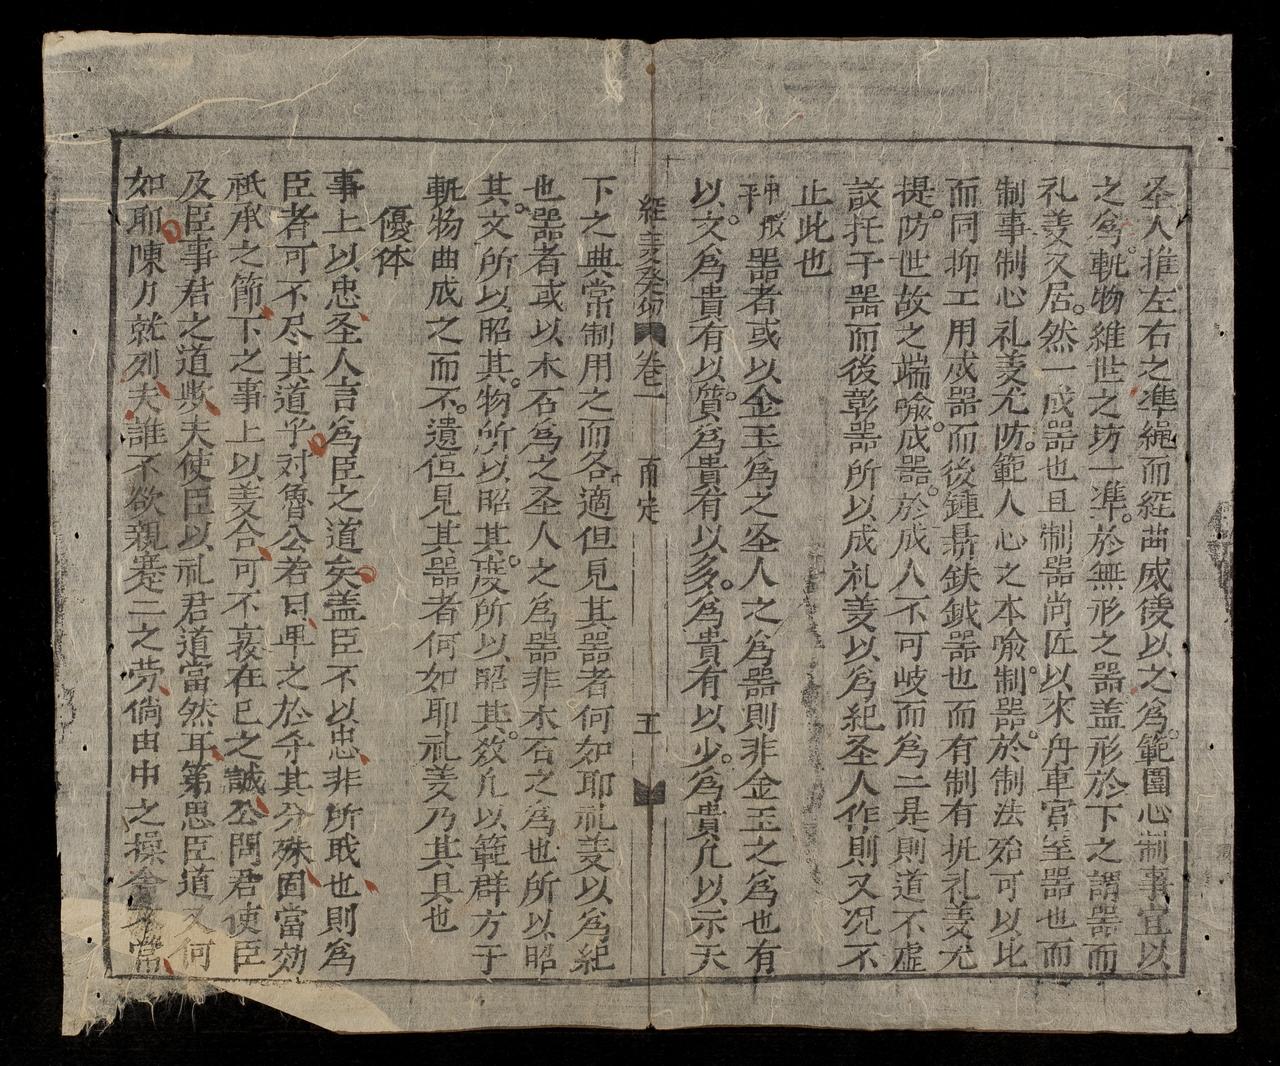 圣人推左右之凖繩而經曲成後以之為範圍心制事宜以
之為軏物維世之坊一凖於無形之器盖形於下之謂器而
礼義久居然一成器也且制器尚匠以來舟車宮室器也而
制事制心礼義尤防範人心之本喻制器於制法殆可以比
而同抑工用成器而後鍾鼎鈇鉞器也而有制有扼礼義尤
提防世故之端喻成器於成人不可岐而為二是則道不虛
設托于器而後彰器所以成礼義以為紀圣人作則又况不
止此也
中股 器者或以金玉為之圣人之為器則非金玉之為也有
以文為貴有以質為貴有以多為貴有以少為貴凢以示天
經義癸卯 卷一 甫定 五
下之典常制用之而各適但見其器者何如耶礼義以為紀
也器者或以木石為之圣人之為器非木石之為也所以昭
其文所以昭其物所以昭其度所以昭其效凢以範群方于
軏物曲成之而不遺但見其器者何如耶礼義乃其具也
優体
事上以忠圣人言為臣之道矣盖臣不以忠非所戢也則為
臣者可不尽其道乎对魯公若曰甲之於乎其分殊固當効
祇承之節下之事上以義合可不衷在已之誠公問君使臣
及臣事君之道歟夫使臣以礼君道當然耳第思臣道又何
如耶陳力就列夫誰不欲親蹇二之劳倘由中之操舍常